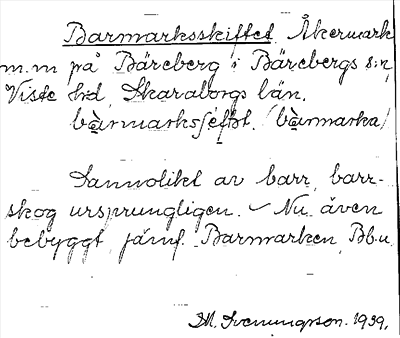 Barmarksskiftet Åkermark
m.m på Bäreberg i Bärebergs s:n,
Viste hd, Skaraborgs län.
(bàrmarka)
Sannolikt av barr, barr-
skog ursprungligen. – Nu även
bebyggt, jämf. Barmarken, Bb.u.
M. Svenungsson. 1939.